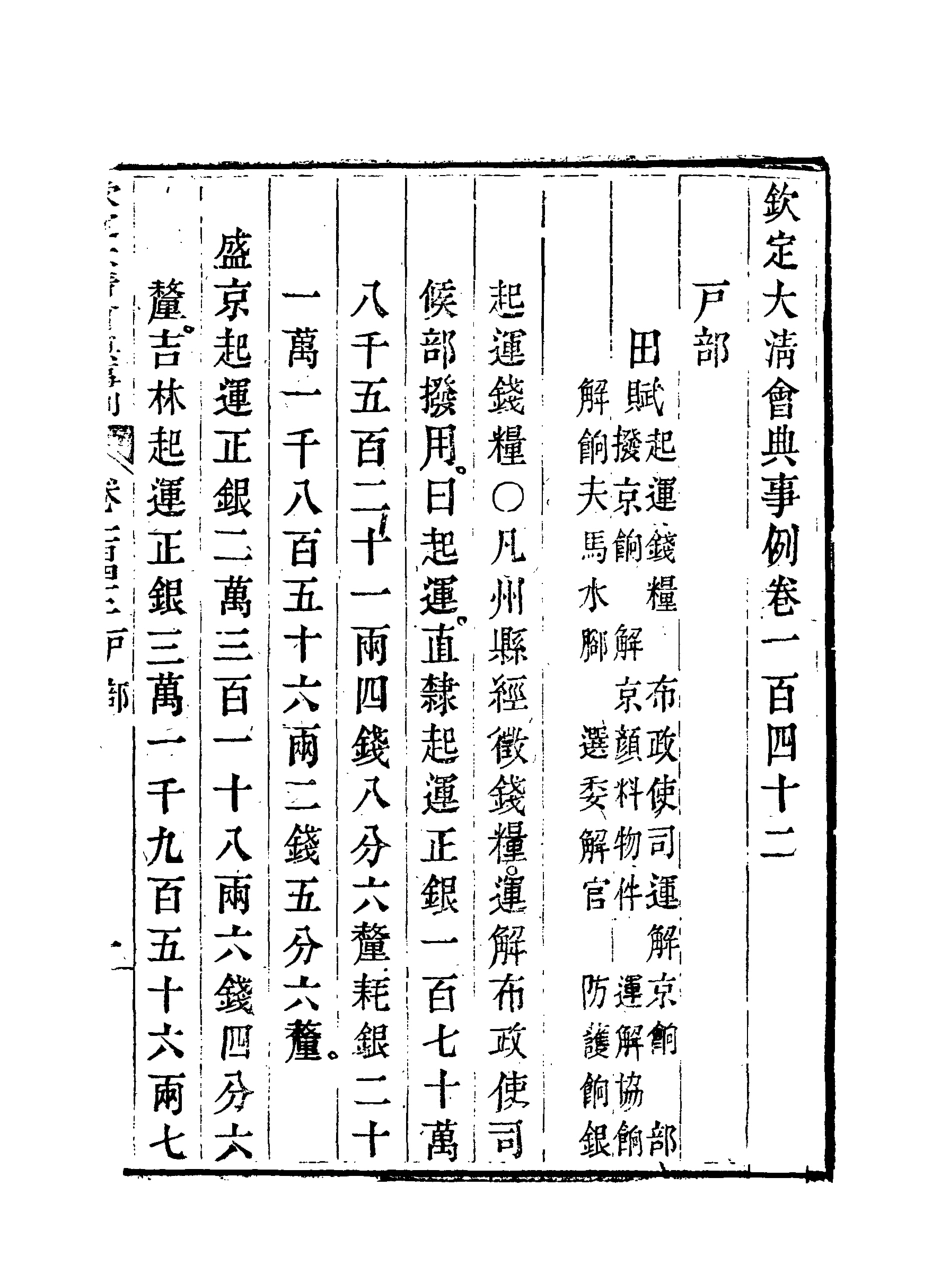 欽定大清會典事例卷一百四十二
戸部
田賦
起運錢糧　布政使司運解京餉　部
撥京餉　解京顏料物件　運解協餉
解餉夫馬水腳　選委解官　防護餉銀
起運錢糧○凡州縣經徵錢糧。運解布政使司
候部撥用。曰起運。直隸起運正銀一百七十萬
八千五百二十一兩四錢八分六釐耗銀二十
一萬一千八百五十六兩二錢五分六釐。
盛京起運正銀二萬三百一十八兩六錢四分六
釐。吉林起運正銀三萬一千九百五十六兩七
戸部　一